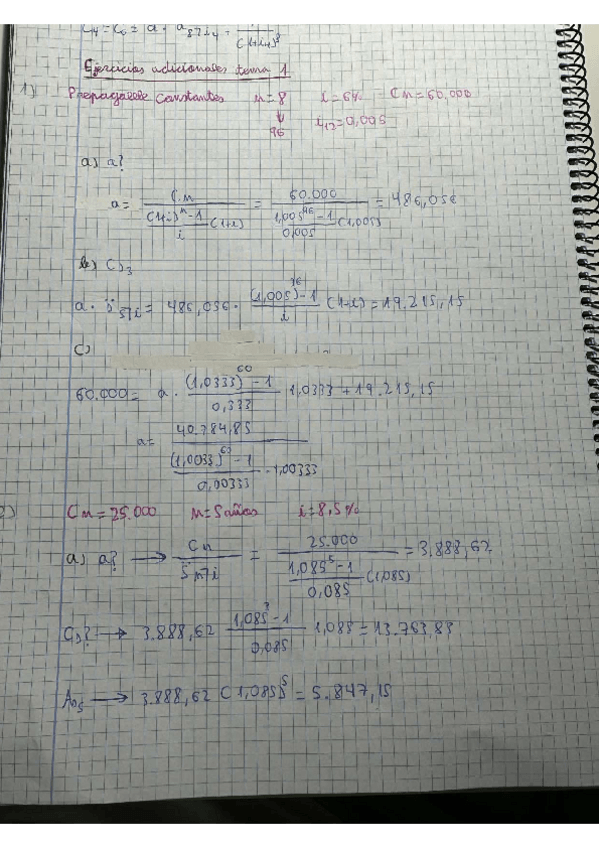 C4 = C0 = a · a87i4 =
(1+i4)8
Ejercicios adicionales tema 1
1) Prepagable constantes n=8 i=6% - Cn=60.000
↓
96 i12=0,005
a) a?
a = Cn / (((1+i)^n - 1)/i (1+i)) = 60.000 / ((1,005^96 - 1)/0,005 (1,005)) = 486,05€
b) C)3
a · s̈57i = 486,05€ · ((1,005)^36 - 1)/i (1+i) = 19.215,15
c)
60.000 = a · ((1,0333)^60 - 1)/0,333 · 1,0333 + 19.215,15
a = 40.784,85 / (((1,0033)^60 - 1)/0,00333 · 1,00333)
2) Cn = 25.000 n=5años i=8,5%
a) a? → Cn / s̈n7i = 25.000 / ((1,085^5 - 1)/0,085 (1,085)) = 3.888,62
C3? → 3.888,62 (1,085^3 - 1)/0,085 · 1,085 = 13.763,83
→ 3.888,62 (1,085)^5 = 5.847,15